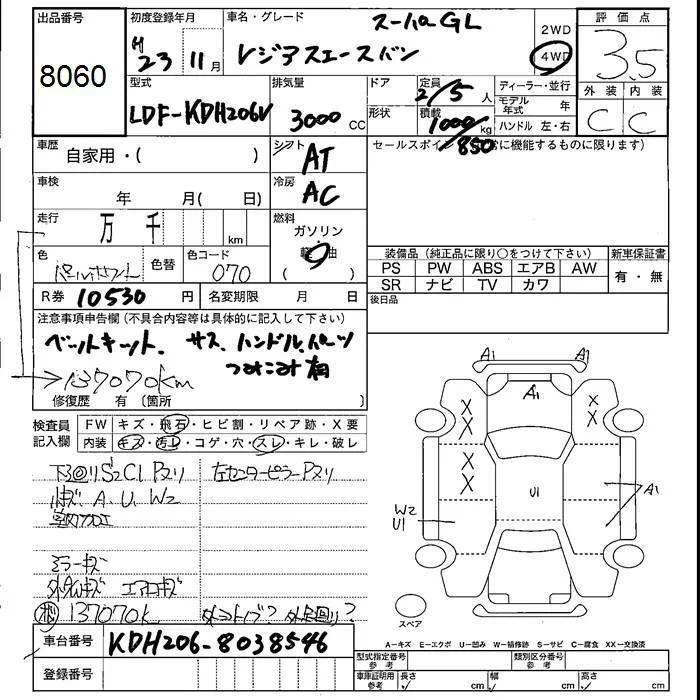 出品番号
8060
初度登録年月
H 23 11月
車名・グレード
スーパーGL
レジアスエースバン
2WD
4WD
評価点
3.5
外装 内装
C C
型式
LDF-KDH206V
排気量
3000 cc
ドア
形状
定員
2/5 人
積載
1000/850 kg
ディーラー・並行
モデル年式 年
ハンドル 左・右
車歴
自家用・( )
シフト
AT
セールスポイン 常に機能するものに限ります)
車検
年 月( 日)
冷房
AC
走行
万 千 km
燃料
ガソリン
軽油
( )
色
パールホワイト
色替
色コード
070
R券 10530 円
名変期限 月 日
装備品 (純正品に限り○をつけて下さい)
新車保証書
PS PW ABS エアB AW
SR ナビ TV カワ
有・無
後日品
注意事項申告欄 (不具合内容等は具体的に記入して下さい)
ベットキット、サス、ハンドル、パーツ
つみこみ有
→137070km
修復歴 有 〔箇所 〕
検査員記入欄
FW キズ・飛石・ヒビ割・リペア跡・X要
内装 キズ・汚レ・コゲ・穴・スレ・キレ・破レ
下回りS2C1 Pヌリ
左センターピラーPヌリ
小キズ、A、U、W2
ミラーキズ
エアロキズ
137070K
車台番号 KDH206-8038546
登録番号
A1 A1
A1
X X
X X
X X
U1
W2
U1
A1
スペア
A-キズ E-エクボ U-凹み W-補修跡 S-サビ C-腐食 XX-交換済
型式指定番号 参考
類別区分番号 参考
車庫証明用 参考
長さ cm
幅 cm
高さ cm